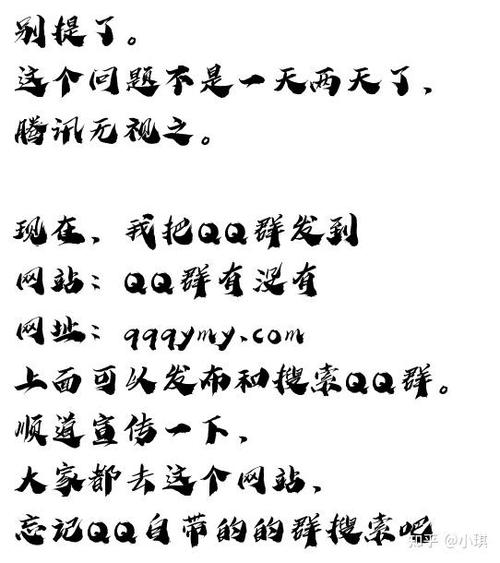 别提了。
这个问题不是一天两天了，
腾讯无视之。
现在，我把QQ群发到
网站：QQ群有没有
网址：qqqymy.com
上面可以发布和搜索QQ群。
顺道宣传一下，
大家都去这个网站，
忘记QQ自带的的群搜索吧
知乎 @小琪